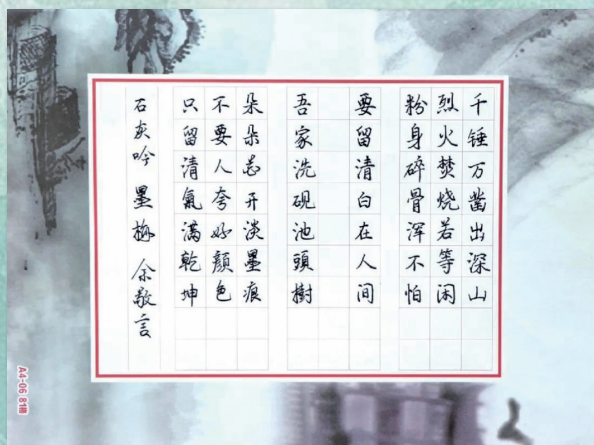 千锤万凿出深山
烈火焚烧若等闲
粉身碎骨浑不怕
要留清白在人间
吾家洗砚池頭樹
朵朵忎开淡墨痕
不要人夸好顏色
只留清氣滿乾坤
石灰吟 墨梅 余敬言
A4-06 81格